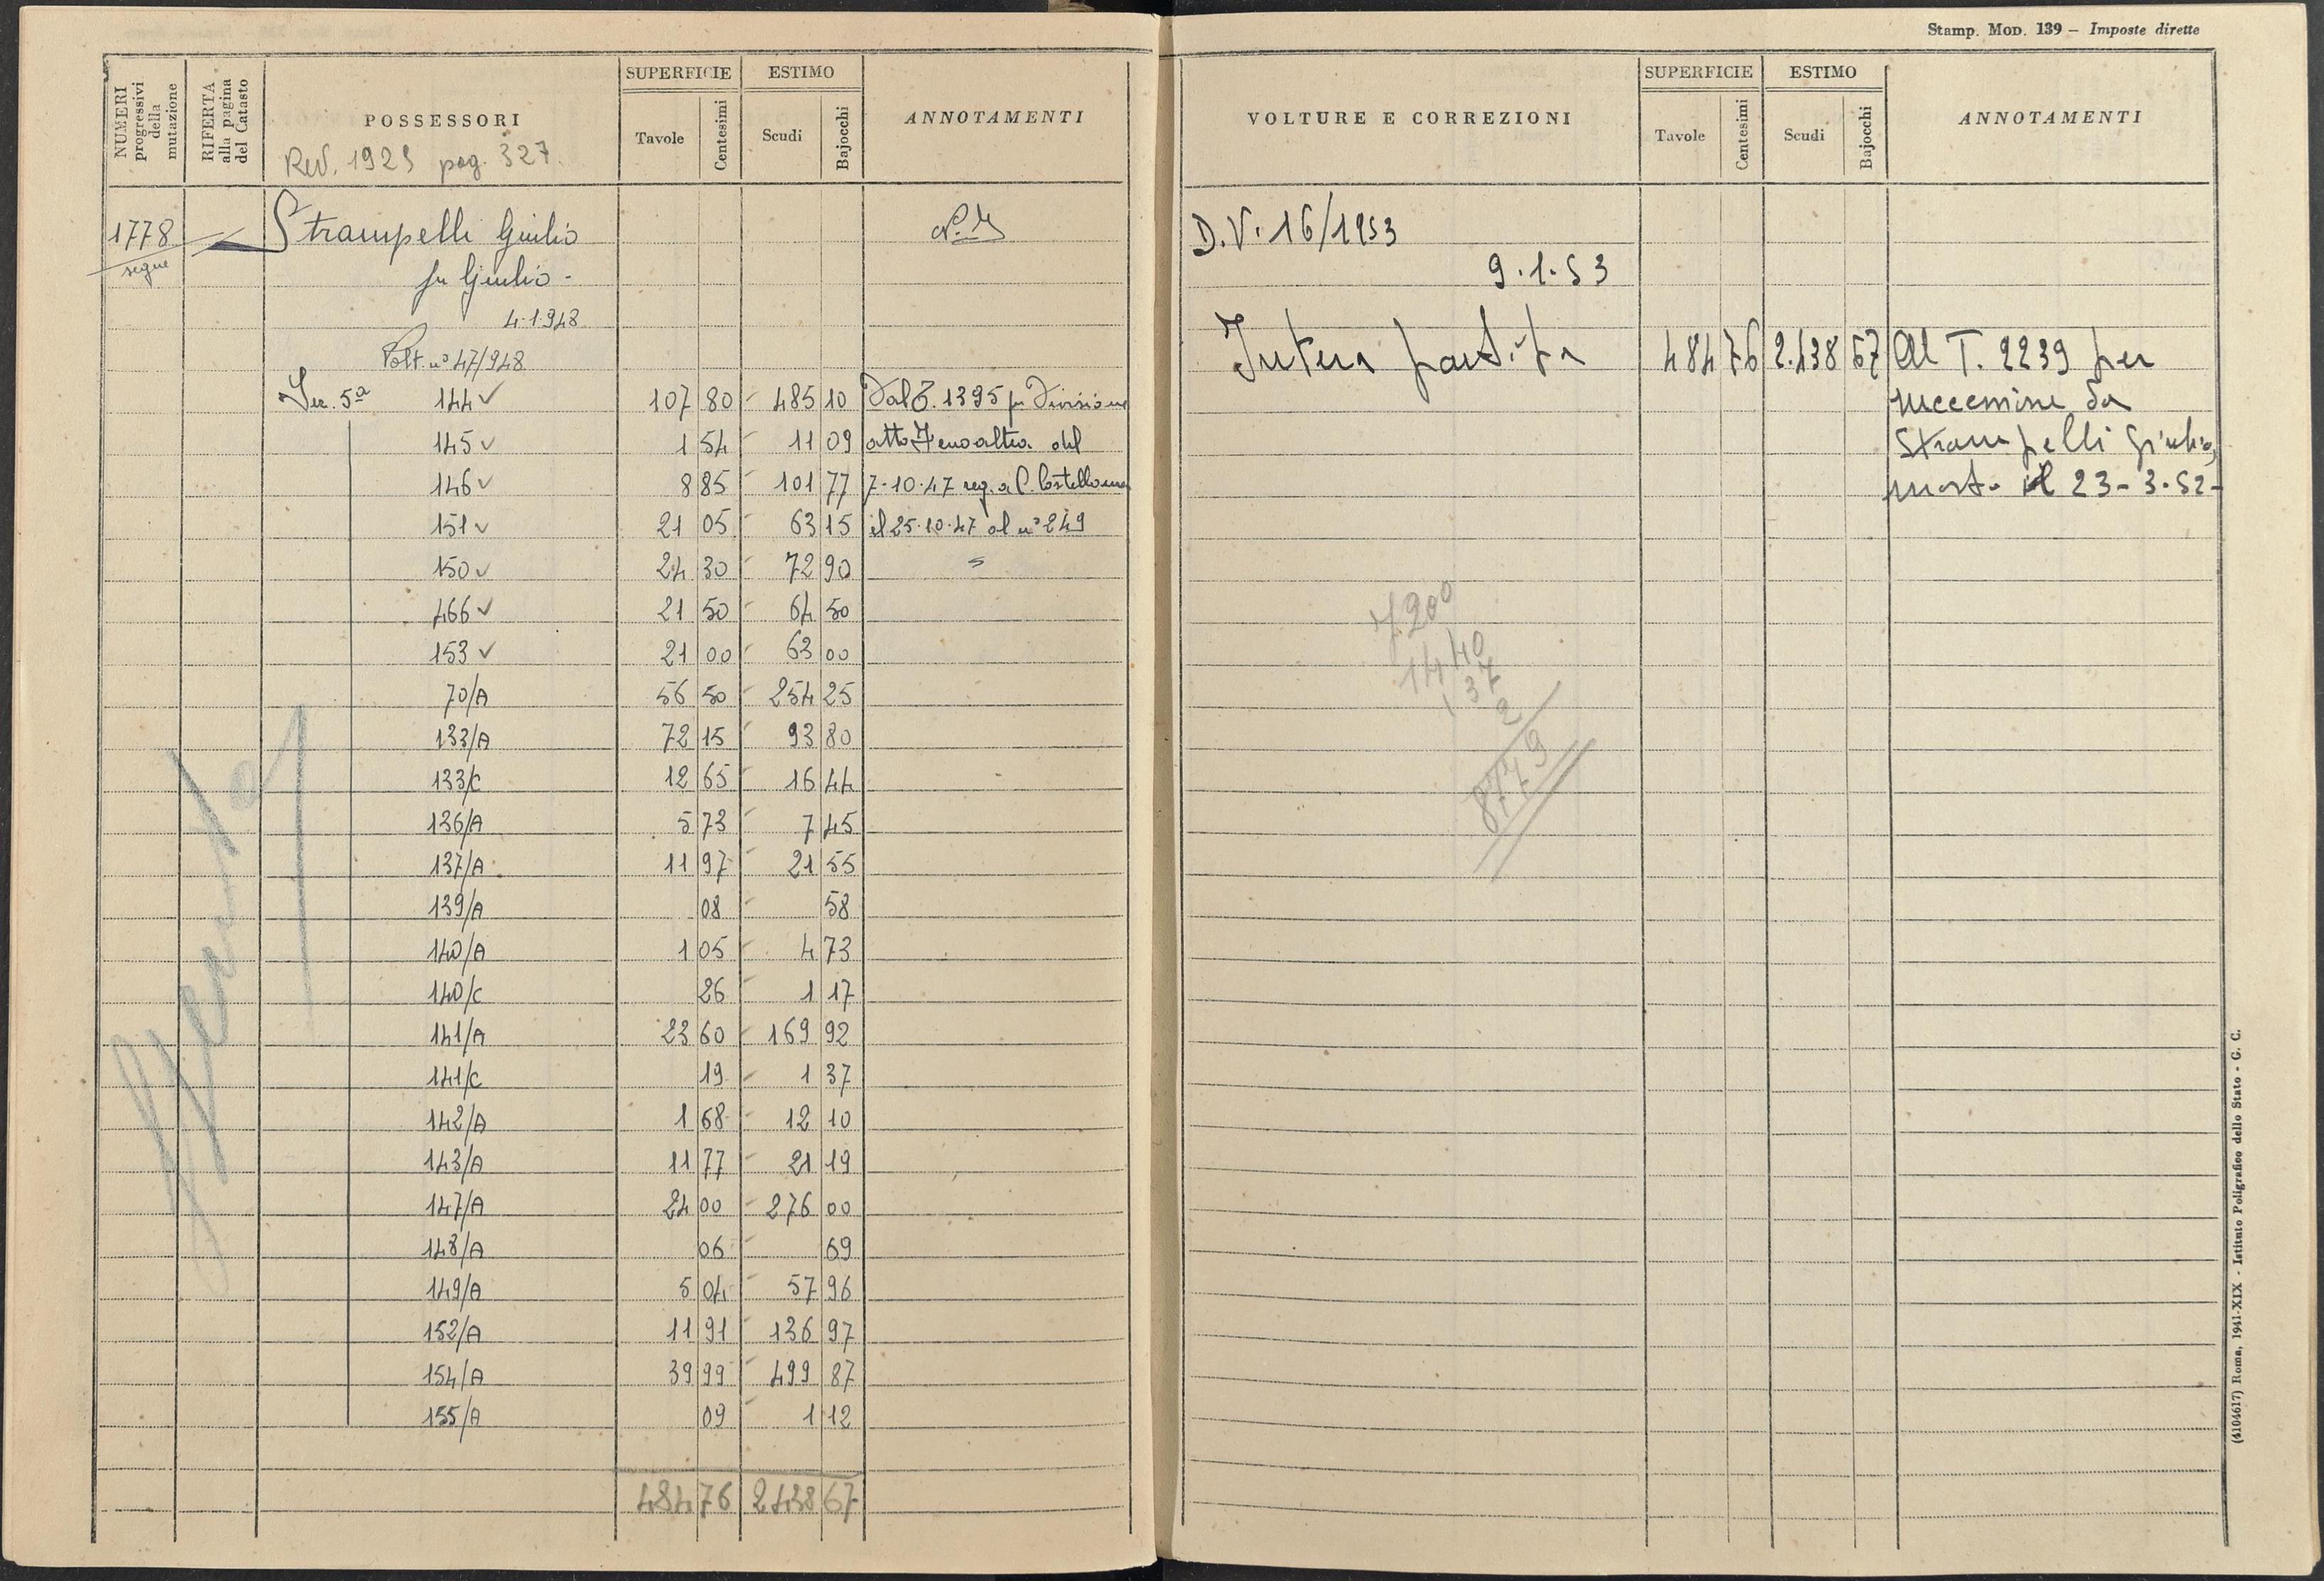 NUMERI progressivi della mutazione
RIFERTA alla pagina del Catasto
POSSESSORI
Rev. 1929 pag. 327.
SUPERFICIE
Tavole
Centesimi
ESTIMO
Scudi
Bajocchi
ANNOTAMENTI
1778
segue
Strampelli Giulio
fu Giulio -
4.1.948
Volt. n° 47/948
Sez. 5ª 144 ✓ 107 80 485 10 Dal T. 1395 per Divisione
145 ✓ 1 54 11 09 atto Fenoaltea del
146 ✓ 8 85 101 77 7-10-47 reg. a C. Castellana
151 ✓ 21 05 63 15 il 25-10-47 al n° 249
150 ✓ 24 30 72 90
466 ✓ 21 50 64 50
153 ✓ 21 00 63 00
70/A 56 50 254 25
133/A 72 15 93 80
133/C 12 65 16 44
136/A 5 73 7 45
137/A 11 97 21 55
139/A 08 58
140/A 1 05 4 73
140/C 26 1 17
141/A 23 60 169 92
141/C 19 1 37
142/A 1 68 12 10
143/A 11 77 21 19
147/A 24 00 276 00
148/A 06 69
149/A 5 04 57 96
152/A 11 91 136 97
154/A 39 99 499 87
155/A 09 1 12
484 76 2438 67
Stamp. Mod. 139 – Imposte dirette
VOLTURE E CORREZIONI
SUPERFICIE
Tavole
Centesimi
ESTIMO
Scudi
Bajocchi
ANNOTAMENTI
D.V. 16/1953
9.1.53
Intera partita 484 76 2.438 67 Al T. 2239 per
successione da
Strampelli Giulio,
morto il 23-3-52-
7200
1440
137
2
8779
(4104617) Roma, 1941-XIX - Istituto Poligrafico dello Stato - G. C.